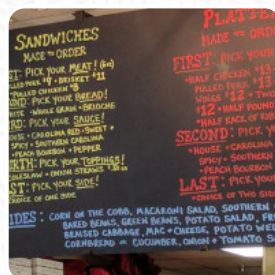 SANDWICHES
MADE TO ORDER
ST: PICK YOUR MEAT!
PULLED PORK $9 • BRISKET $11
• PULLED CHICKEN $8
OND: PICK YOUR BREAD!
WHITE • WHOLE GRAIN • BRIOCHE
RD: PICK YOUR SAUCE!
HOUSE • CAROLINA RED • SWEET •
SPICY • SOUTHERN CAROLINA
• PEACH BOURBON • PEPPER
RTH: PICK YOUR TOPPINGS!
COLESLAW • ONION STRAWS
ST: PICK YOUR SIDE!
CHOICE OF ONE SIDE
PLATTE
MADE TO ORD
FIRST: PICK YOUR
•HALF CHICKEN $13
PULLED PORK
WINGS $12 • TWO
$12 • HALF POUND
HALF RACK OF RIB
SECOND: PICK
•HOUSE • CAROLINA
SPICY • SOUTHERN
• PEACH BOURBON
LAST: PICK YOUR
•CHOICE OF TWO SID
IDES: CORN ON THE COBB, MACARONI SALAD, SOUTHERN
BAKED BEANS, GREEN BEANS, POTATO SALAD, FR
BRAISED CABBAGE, MAC + CHEESE, POTATO WED
CORNBREAD or CUCUMBER, ONION + TOMATO S